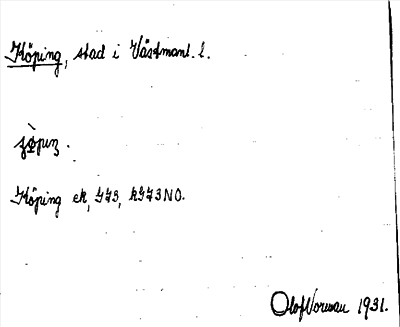 Köping, stad i Västmanl. l.
Köping ek, G73, kG73NO.
Olof Noreau 1931.